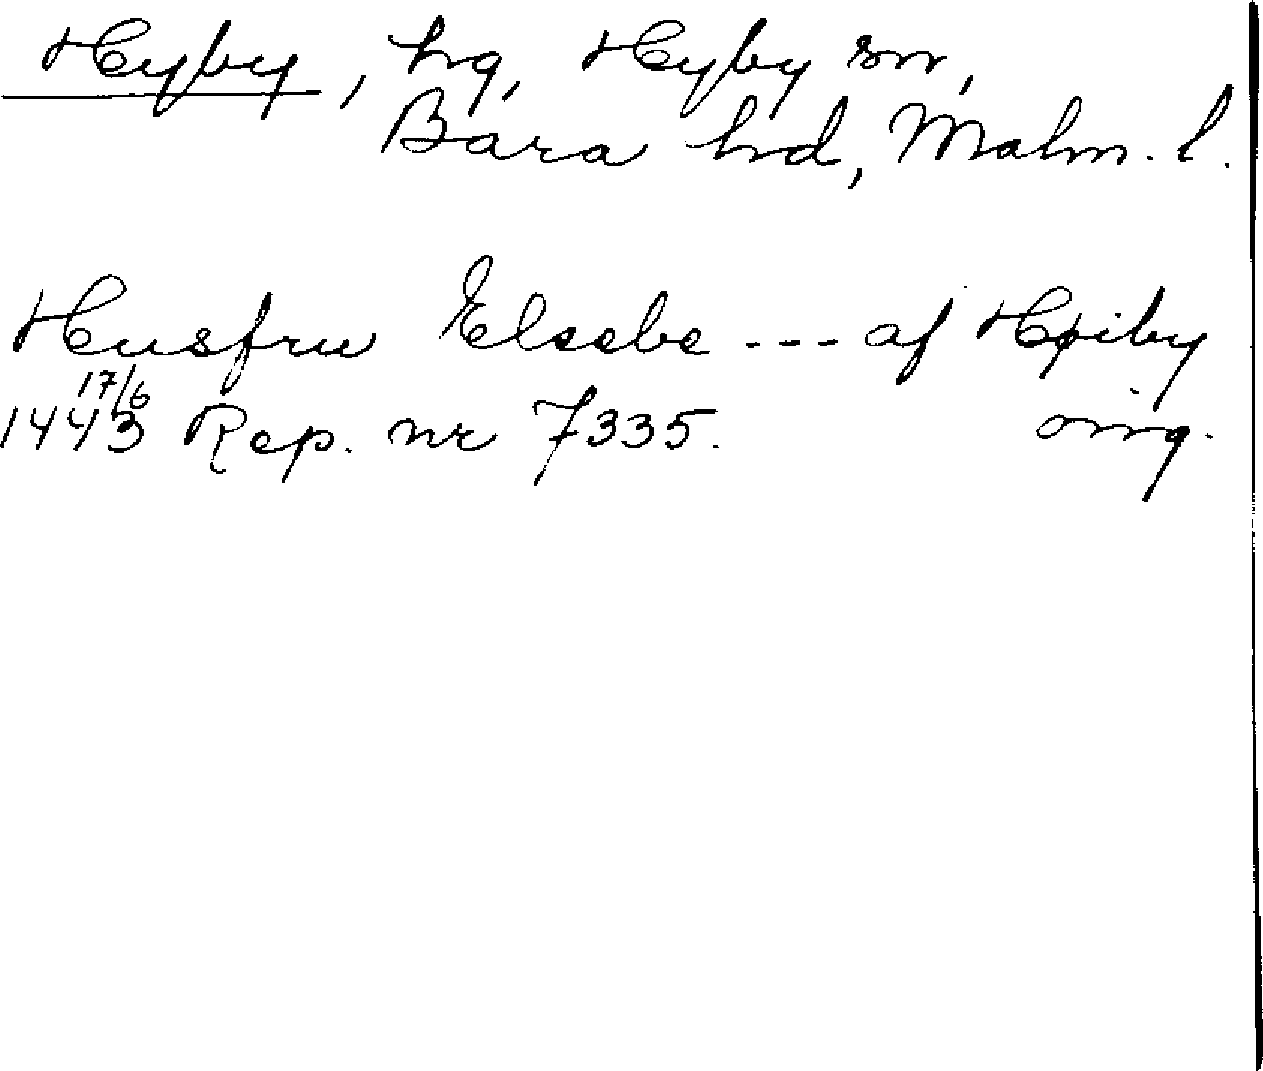 Hyby, hg, Hyby sn,
Bara hd, Malm. l.
Husfru Elsebe --- af Høiby
17/6
1443 Rep. nr 7335. orig.